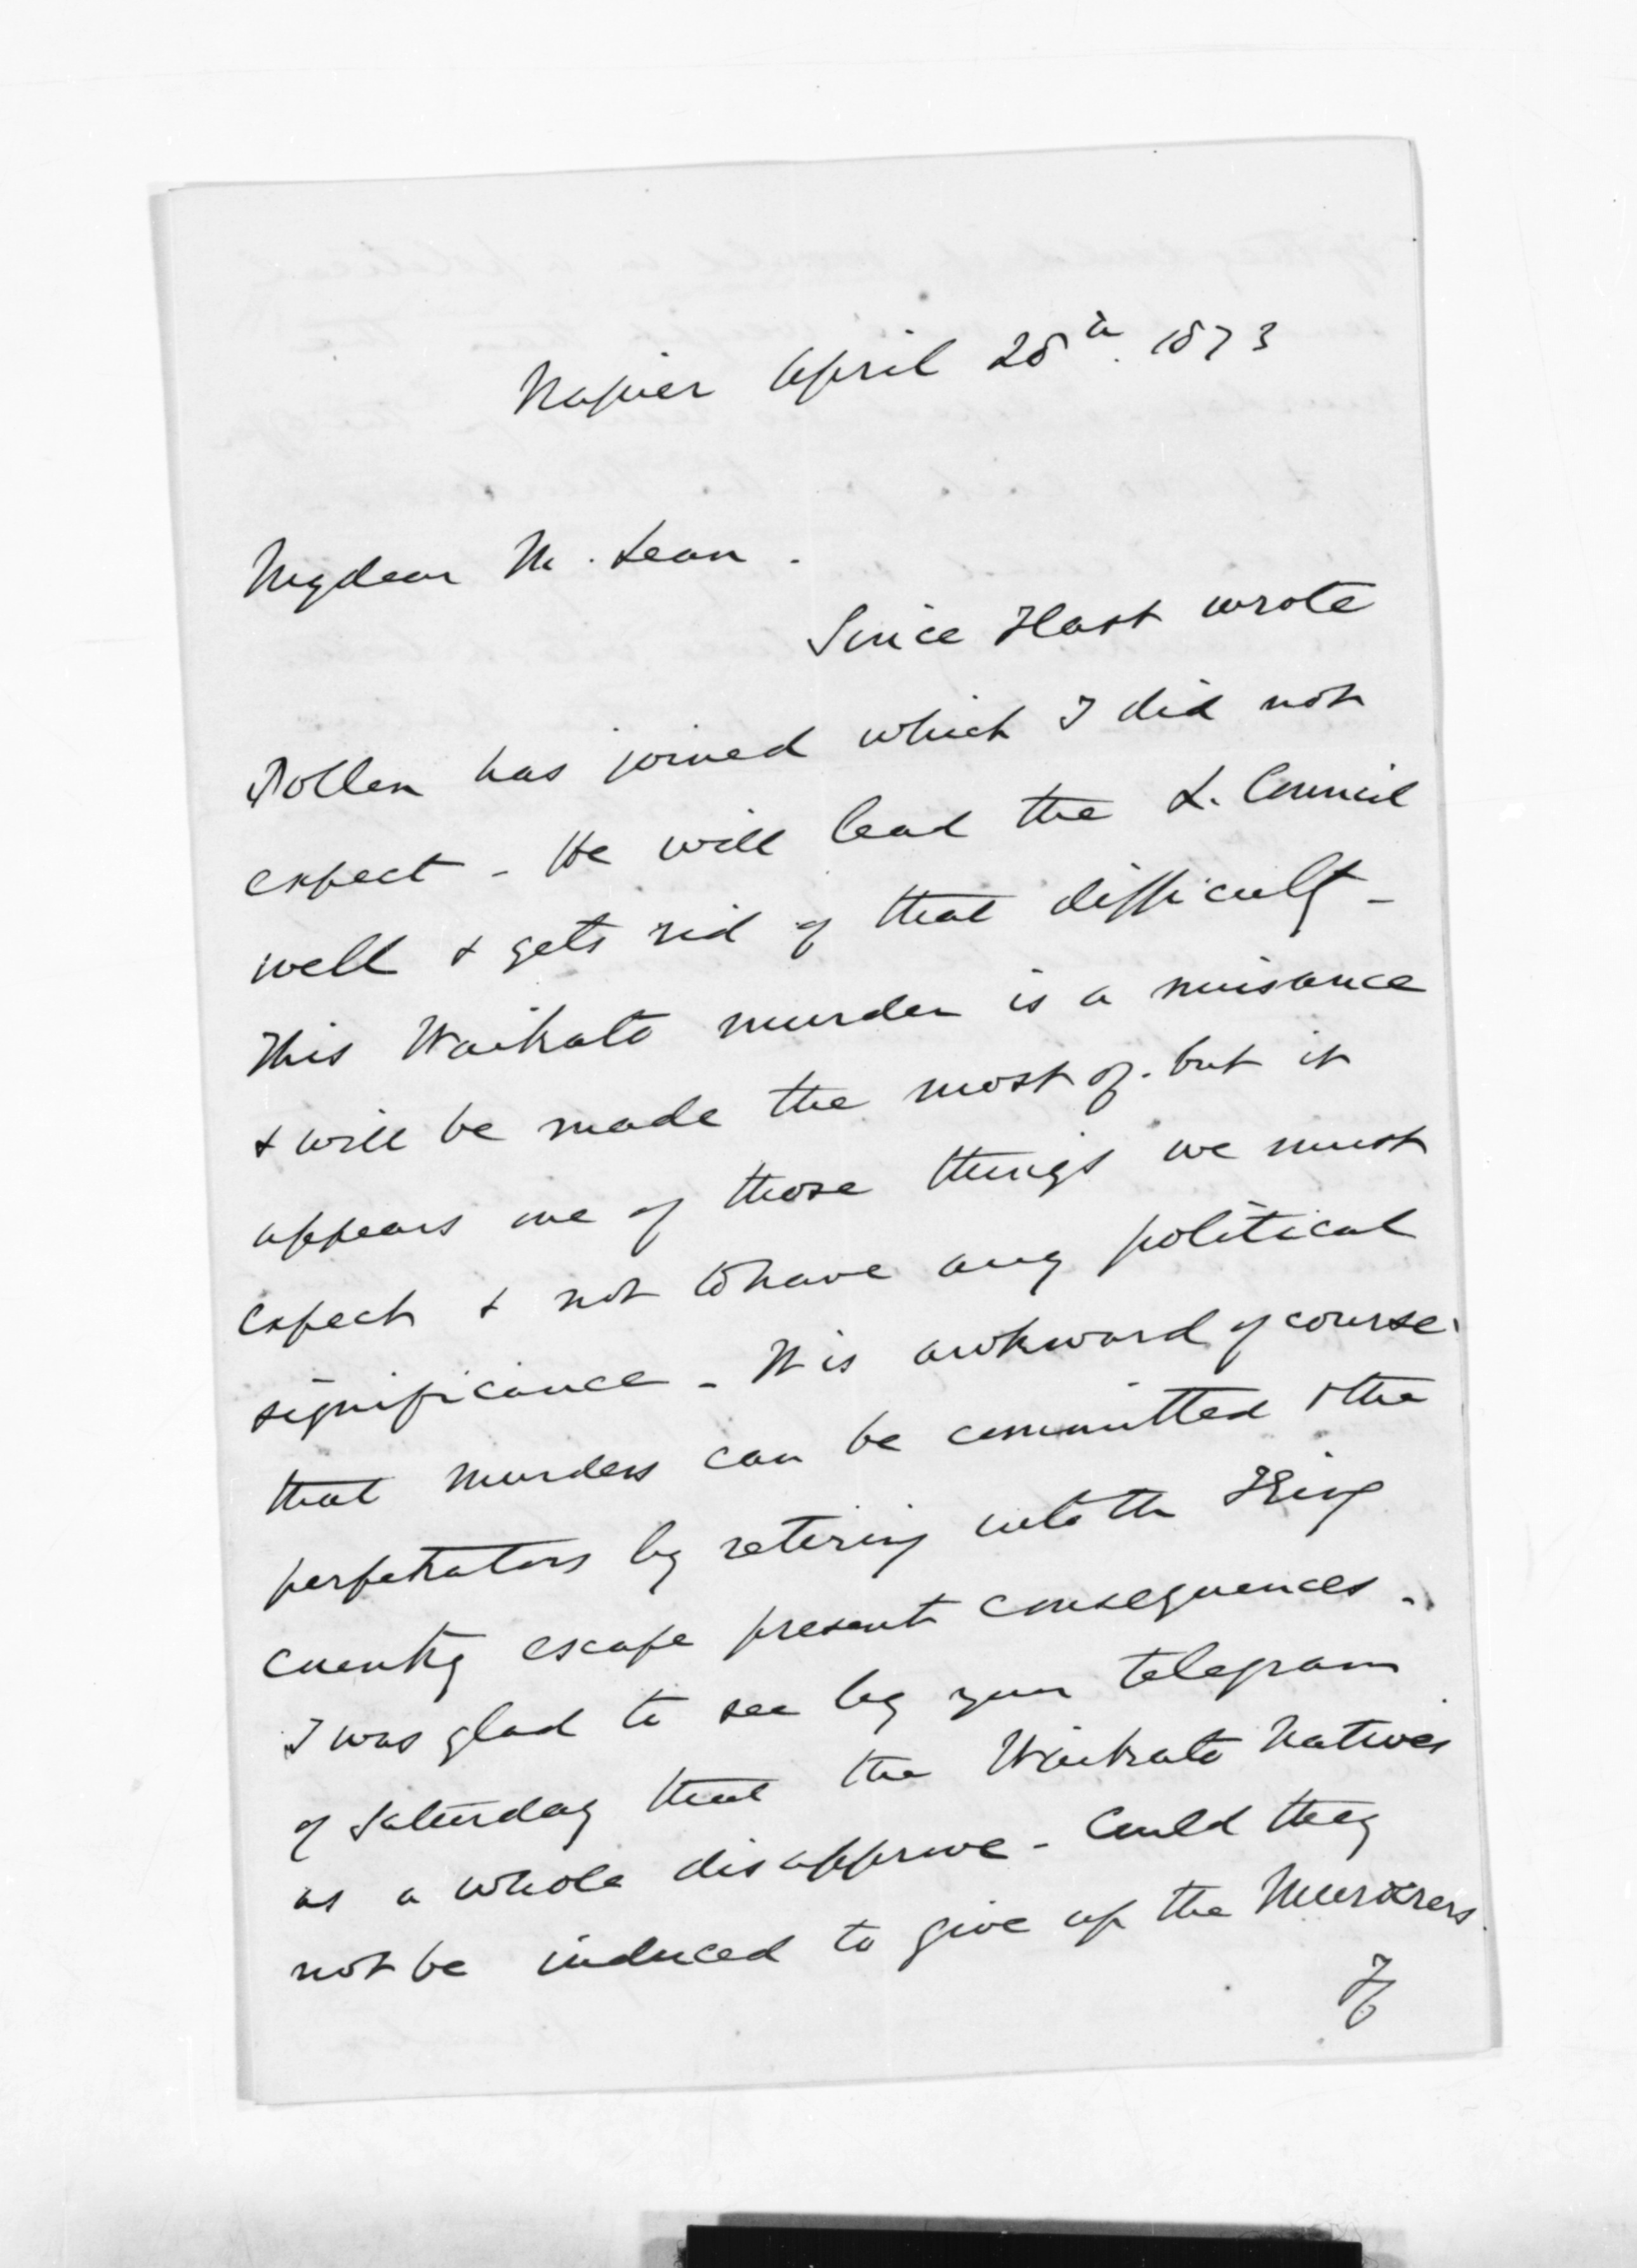 Napier April 28th. 1873
My dear M. Lean.
Since I last wrote
Pollen has joined which I did not
expect - He will lead the L. Council
well & gets rid of that difficulty -
This Waikato murder is a nuisance
& will be made the most of. but it
appears one of those things we must
expect & not to have any political
significance - It is awkward of course
that murders can be committed & the
perpetrators by retiring into the King
country escape present consequences.
I was glad to see by your telegram
of Saturday that the Waikato Natives
as a whole disapprove - Could they
not be induced to give up the Murderers.
If